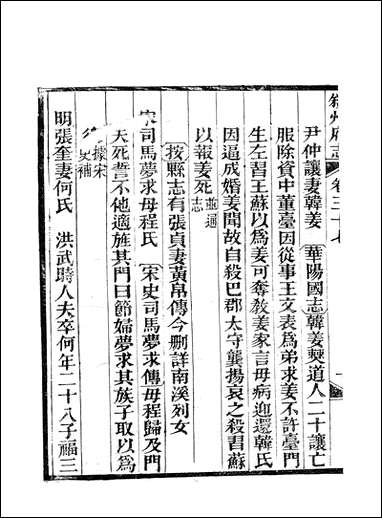 叙州府志 卷三十七 一
尹仲讓妻韓姜 華陽國志韓姜僰道人二十讓亡
服除資中董臺因從事王文表爲弟求姜不許臺門
生左習王蘇以爲姜可奪教姜家言毋病迎還韓氏
因逼成婚姜聞故自殺巴郡太守龔揚哀之殺習蘇
以報姜死 並通志
按縣志有張貞妻黃帛傳今刪詳南溪列女
宋司馬夢求毋程氏 宋史司馬夢求傳毋程歸及門
夫死誓不他適旌其門曰節婦夢求其族子取以爲
據宋史補
明張奎妻何氏 洪武時人夫卒何年二十八子福三